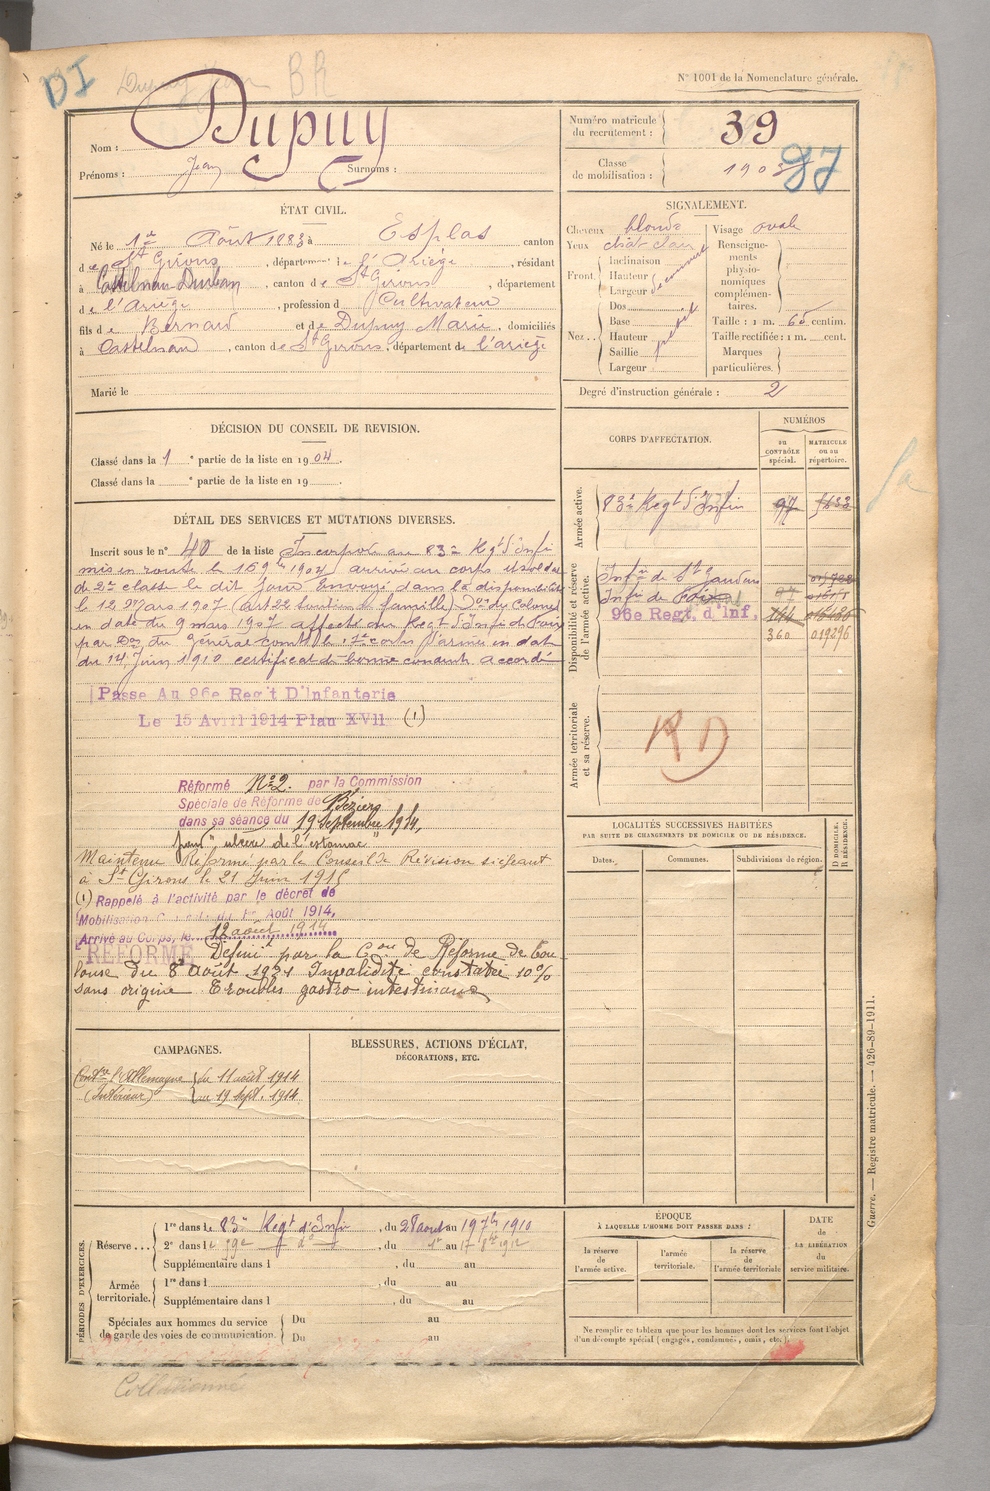 DI
BR
N° 1001 de la Nomenclature générale.
Nom : Dupuy
Prénoms : Jean Surnoms :
Numéro matricule du recrutement : 39
Classe de mobilisation : 1903
97
ÉTAT CIVIL.
Né le 1er Août 1883 à Esplas canton
de St Girons, département de l'Ariège, résidant
à Castelnau-Durban, canton de St Girons, département
de l'Ariège, profession d Cultivateur
fils de Bernard et de Dupuy Marie, domiciliés
à Castelnau, canton de St Girons, département de l'ariège
Marié le
SIGNALEMENT.
Cheveux blonds Visage ovale
Yeux chât clair
Front. Inclinaison
Hauteur
Largeur
Renseignements physionomiques complémentaires.
Nez.. Dos
Base
Hauteur
Saillie
Largeur
petit
Taille : 1 m. 65 centim.
Taille rectifiée : 1 m. cent.
Marques particulières.
Degré d'instruction générale : 2
DÉCISION DU CONSEIL DE REVISION.
Classé dans la 1e partie de la liste en 1904.
Classé dans la e partie de la liste en 19 .
CORPS D'AFFECTATION.
NUMÉROS
AU CONTRÔLE spécial.
MATRICULE ou au répertoire.
Armée active.
83e Regt d'Infie 97
Disponibilité et réserve de l'armée active.
Infie de St Gaudens
Infie de Foix
96e Regt. d'Inf.
360 019296
Armée territoriale et sa réserve.
RD
DÉTAIL DES SERVICES ET MUTATIONS DIVERSES.
Inscrit sous le n° 40 de la liste Incorporé au 83e Regt d'Infie
mis en route le 16 9bre 1904 arrivé au corps et soldat
de 2e classe le dit jour Envoyé dans la disponibilité
le 12 Mars 1907 (art 22 soutien de famille) Don du Colonel
en date du 9 mars 1907 affecté au Regt d'Infie de Foix
par Don du général comt le 17e corps d'armée en date
du 14 Juin 1910 certificat de bonne conduite accordé
Passe Au 96e Reg't D'Infanterie
Le 15 Avril 1914 Plan XVII (1)
Réformé N° 2. par la Commission
Spéciale de Réforme de Béziers
dans sa séance du 19 Septembre 1914,
pour "ulcère de l'estomac"
Maintenu Réformé par le Conseil de Révision siégeant
à St Girons le 21 Juin 1915
(1) Rappelé à l'activité par le décret de
Mobilisation Générale du 1er Août 1914,
Arrivé au Corps, le 12 août 1914
RÉFORMÉ Définit par la Con de Réforme de Tou
louse du 8 août 1921 Invalidité constatée 10%
sans origine Troubles gastro intestinaux
LOCALITÉS SUCCESSIVES HABITÉES
PAR SUITE DE CHANGEMENTS DE DOMICILE OU DE RÉSIDENCE.
Dates. Communes. Subdivisions de région.
D DOMICILE.
R RÉSIDENCE.
CAMPAGNES.
Contre l'Allemagne du 11 août 1914
(Intérieur) au 19 Sept. 1914
BLESSURES, ACTIONS D'ÉCLAT,
DÉCORATIONS, ETC.
PÉRIODES D'EXERCICES.
Réserve... 1re dans le 83e Regt d'Infie, du 28 août au 19 7bre 1910
2e dans le 59e do, du 1er au 17 8bre 1912
Supplémentaire dans l , du au
Armée territoriale. 1re dans l , du au
Supplémentaire dans l , du au
Spéciales aux hommes du service Du au
de garde des voies de communication. Du au
ÉPOQUE
À LAQUELLE L'HOMME DOIT PASSER DANS :
la réserve de l'armée active.
l'armée territoriale.
la réserve de l'armée territoriale
DATE de LA LIBÉRATION du service militaire.
Ne remplir ce tableau que pour les hommes dont les services font l'objet
d'un décompte spécial (engagés, condamnés, omis, etc.).
Guerre. — Registre matricule. — 426-89-1911.
Collationné